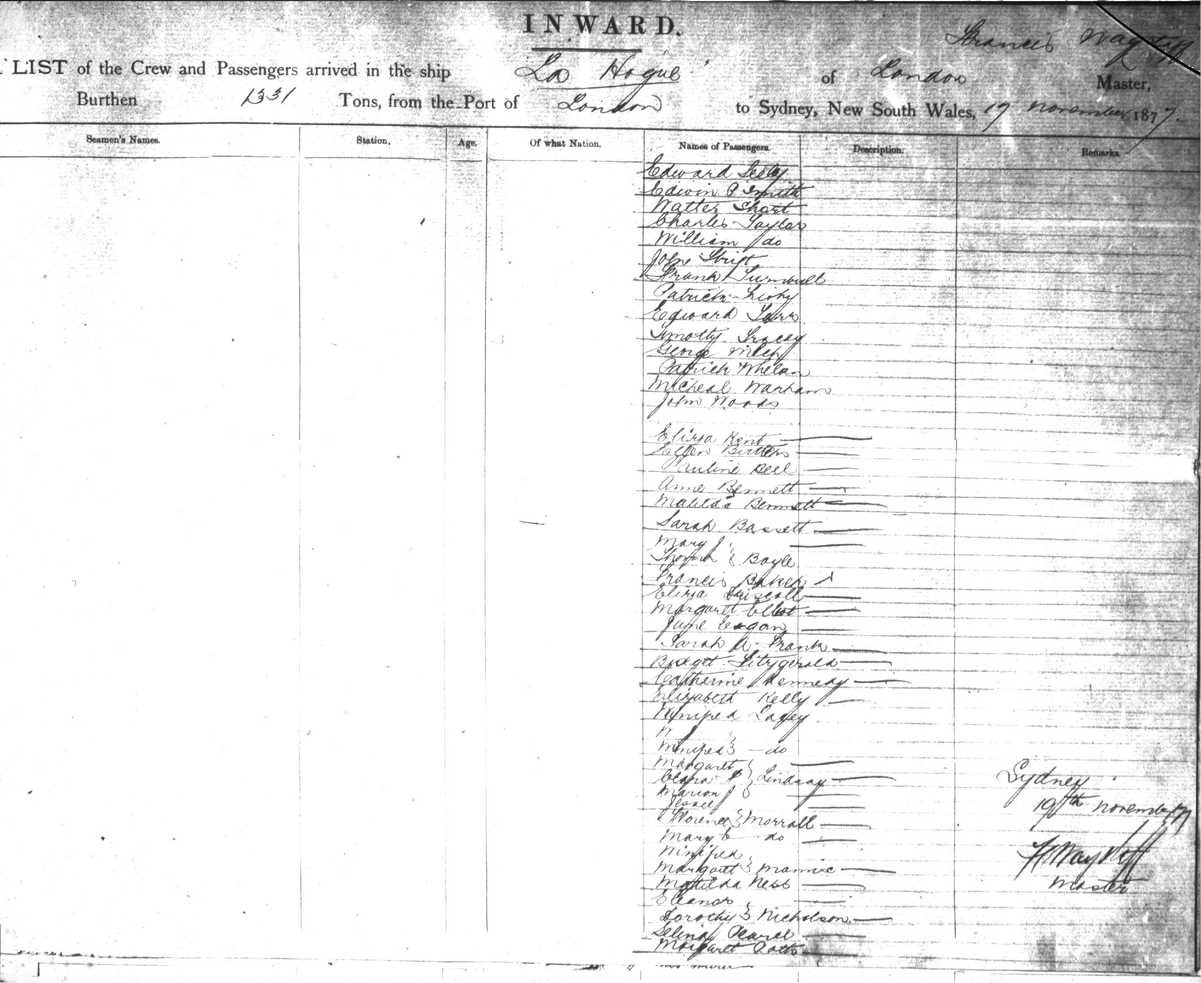 INWARD.
Francis Wagstaff
LIST of the Crew and Passengers arrived in the ship "La Hogue" of London Master,
Burthen 1331 Tons, from the Port of London to Sydney, New South Wales, 19 November 1877.
Seamen's Names. Station, Age. Of what Nation. Names of Passengers. Description. Remarks.
Edward Seely
Edwin P Smith
Walter Short
Charles Taylor
William do
John
Frank Turnbull
Patrick
Edward
Timothy Tracey
George
Patrick Whelan
Micheal Warham
John Woods
Eliza Kent
Pauline Bell
Anne Bennett
Matilda Bennett
Sarah Bassett
Mary
Boyle
Francis Baker
Eliza Driscoll
Margaret Elliot
Jane Eagan
Sarah A. Frank
Bridget Fitzgerald
Catherine Kennedy
Elizabeth Kelly
Winifred Lacey
Winifred do
Margaret
Clara Lindsay
Marion
Jessie
Florence Morrall
Mary E do
Winifred
Margaret Mannie
Matilda Ness
Eleanor
Dorothy Nicholson
Selina Pearce
Margaret Potts
Sydney
19th November
F Wagstaff
Master